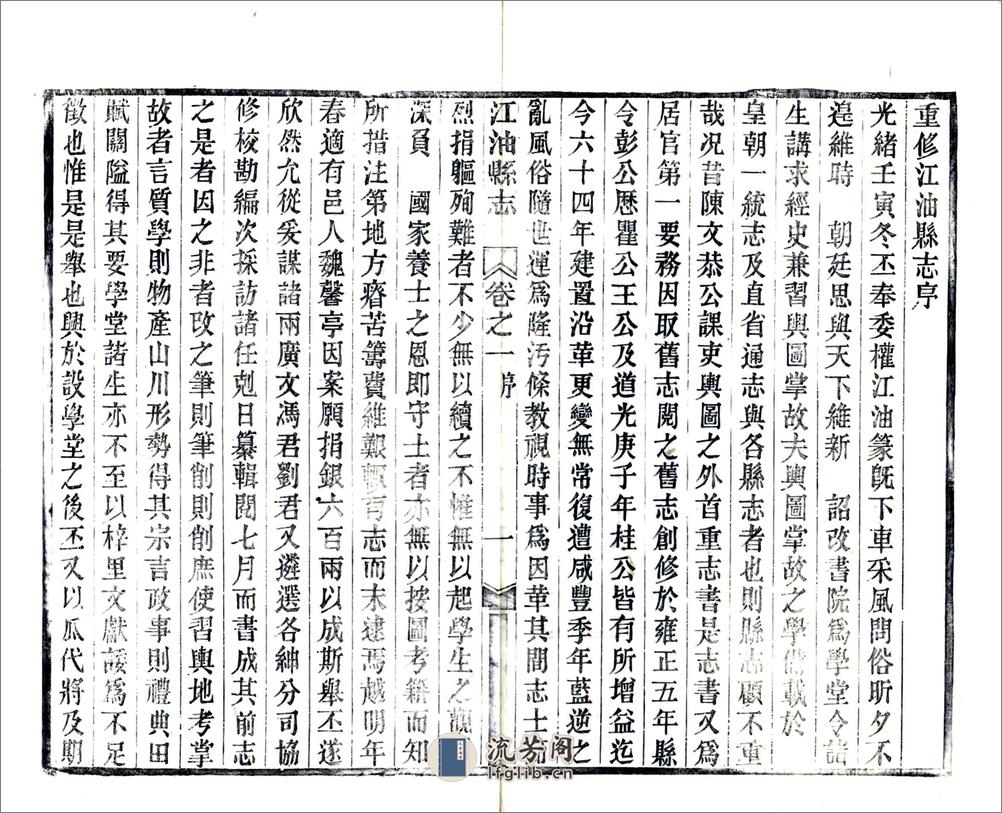 重修江油縣志序
光緒壬寅冬丕奉委權江油篆旣下車采風問俗昕夕不
遑維時 朝廷思與天下維新 詔改書院爲學堂令諸
生講求經史兼習輿圖掌故夫輿圖掌故之學備載於
皇朝一統志及直省通志與各縣志者也則縣志顧不重
哉况昔陳文恭公課吏輿圖之外首重志書是志書又爲
居官第一要務因取舊志閱之舊志創修於雍正五年縣
令彭公歷瞿公王公及道光庚子年桂公皆有所增益迄
今六十四年建置沿革更變無常復遭咸豐季年藍逆之
亂風俗隨世運爲隆汚條教視時事爲因革其間志士
江油縣志 卷之一 序 一
烈捐軀殉難者不少無以續之不惟無以起學生之觀
深負 國家養士之恩即守土者亦無以按圖考籍而知
所措注第地方瘠苦籌費維艱輒有志而未逮焉越明年
春適有邑人魏馨亭因案願捐銀六百兩以成斯舉丕遂
欣然允從爰謀諸兩廣文馮君劉君又遴選各紳分司協
修校勘編次採訪諸任剋日纂輯閱七月而書成其前志
之是者因之非者改之筆則筆削則削庶使習輿地考掌
故者言質學則物產山川形勢得其宗言政事則禮典田
賦關隘得其要學堂諸生亦不至以梓里文獻諉爲不足
徵也惟是是舉也興於設學堂之後丕又以瓜代將及期
流芳阁
lfglib.cn